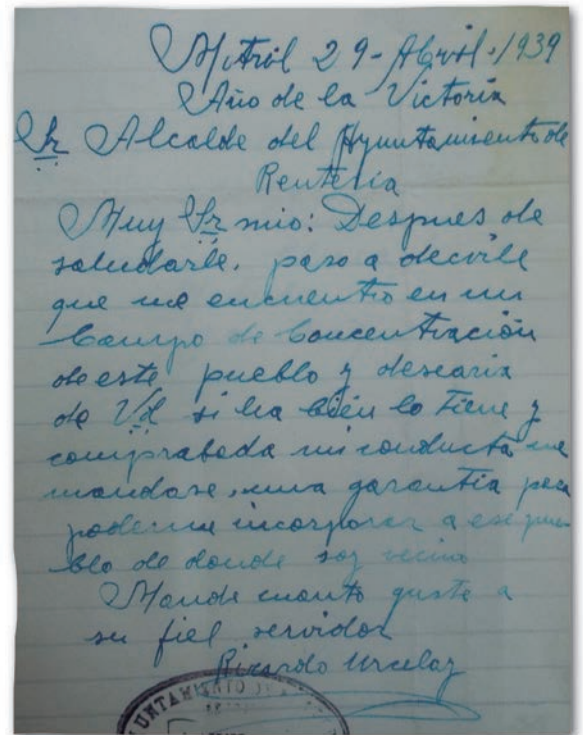 Motril 29-Abril-1939
Año de la Victoria
Sr Alcalde del Ayuntamiento de
Rentería
Muy Sr mio: Despues de
saludarle, paso a decirle
que me encuentro en un
Campo de Concentración
de este pueblo y desearia
de Vd si ha bién lo tiene y
comprabada mi conducta me
mandase, una garantia para
poderme incorporar a ese pue
blo de donde soy vecino
Mande cuanto guste a
su fiel servidor
Ricardo Urcelay
UNTAMIENTO DE